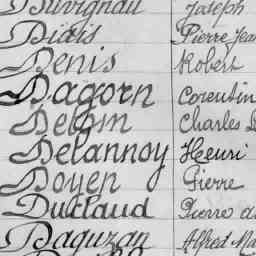 Duvignau Joseph
Diais Pierre Jean
Denis Robert
Dagorn Corentin
Delom Charles
Delannoy Henri
Doyen Pierre
Duclaud Pierre
Daguzan Alfred